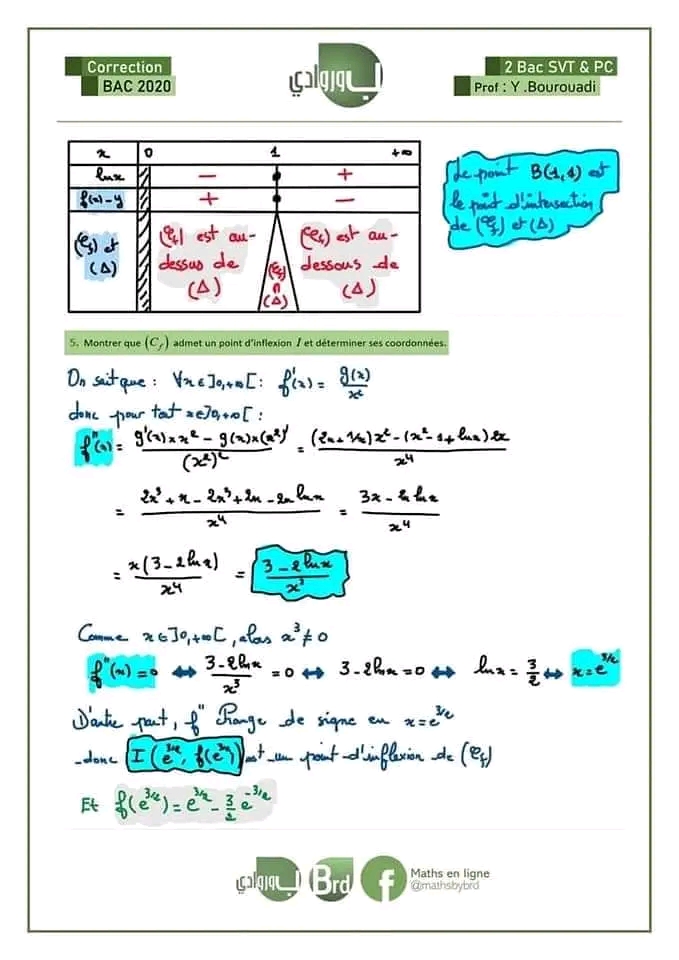 Correction
BAC 2020
بوروادي
2 Bac SVT & PC
Prof : Y .Bourouadi
x 0 1 +∞
lnx − +
f(x) − y + −
(𝒞f) et (Δ)
(𝒞f) est au-dessus de (Δ)
(𝒞f) ∩ (Δ)
(𝒞f) est au-dessous de (Δ)
Le point B(1,1) est
le point d'intersection
de (𝒞f) et (Δ)
5. Montrer que (Cf) admet un point d'inflexion I et déterminer ses coordonnées.
On sait que : ∀x∈]0,+∞[ : f'(x) = g(x)/x²
donc pour tout x∈]0,+∞[ :
f''(x) = (g'(x) × x² − g(x) × (x²)')/(x²)² = ((2x + 1/x)x² − (x² − 1 + lnx) 2x)/x⁴
= (2x³ + x − 2x³ + 2x − 2x lnx)/x⁴ = (3x − 2x lnx)/x⁴
= x(3 − 2lnx)/x⁴ = (3 − 2lnx)/x³
Comme x∈]0,+∞[, alors x³ ≠ 0
f''(x) = 0 ⇔ (3 − 2lnx)/x³ = 0 ⇔ 3 − 2lnx = 0 ⇔ lnx = 3/2 ⇔ x = e^3/2
D'autre part, f'' change de signe en x = e^3/2
donc I(e^3/2, f(e^3/2)) est un point d'inflexion de (𝒞f)
Et f(e^3/2) = e^3/2 − 3/2 e^-3/2
بوروادي
Brd
f
Maths en ligne
@mathsbybrd